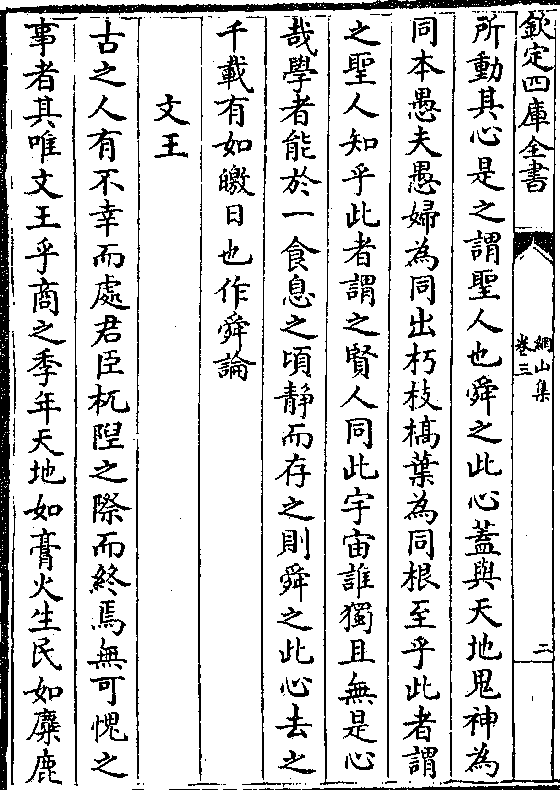 欽定四庫全書
網山集
卷三
二
所動其心是之謂聖人也舜之此心蓋與天地鬼神為
同本愚夫愚婦為同出朽枝槁葉為同根至乎此者謂
之聖人知乎此者謂之賢人同此宇宙誰獨且無是心
哉學者能於一食息之頃静而存之則舜之此心去之
千載有如皦日也作舜論
文王
古之人有不幸而處君臣杌隉之際而終焉無可愧之
事者其唯文王乎商之季年天地如膏火生民如麋鹿